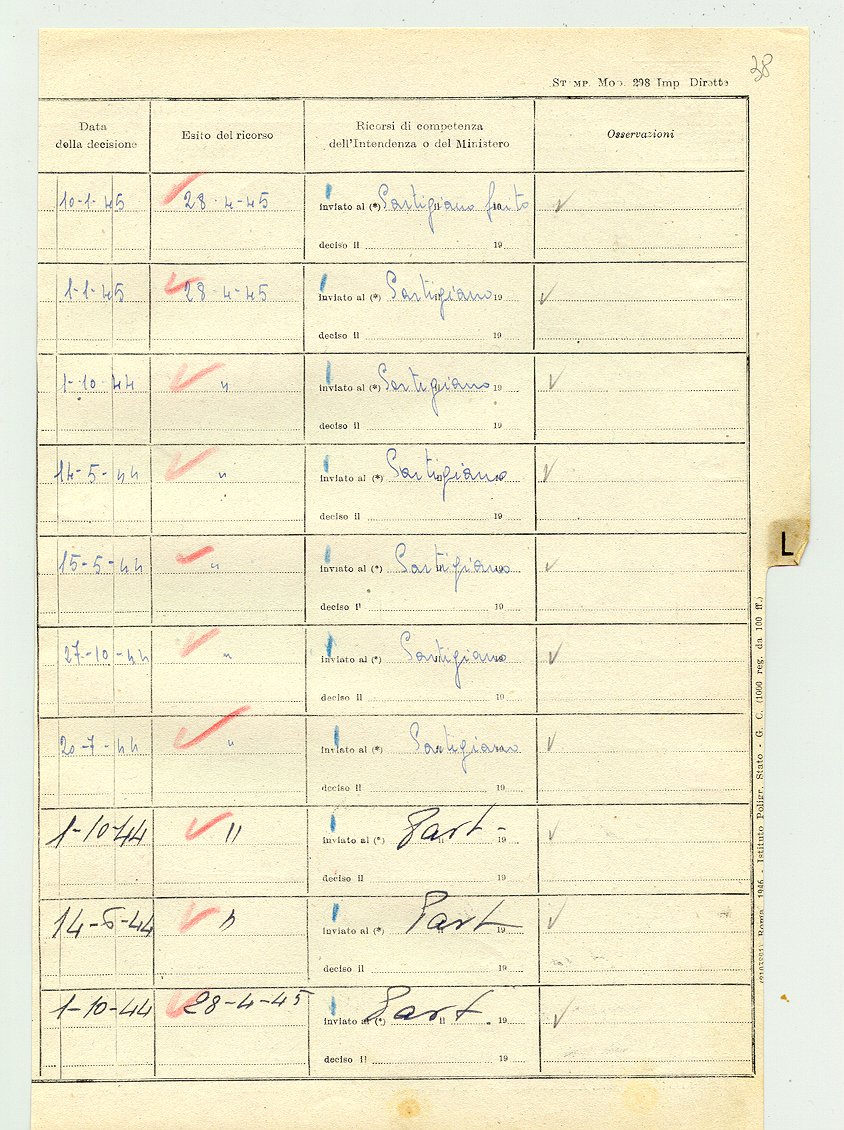 38
STAMP. MOD. 298 Imp Dirette
Data
della decisione
Esito del ricorso
Ricorsi di competenza
dell'Intendenza o del Ministero
Osservazioni
10-1-45 28-4-45 inviato al (*) Partigiano il 19
deciso il 19
1-1-45 28-4-45 inviato al (*) Partigiano il 19
deciso il 19
1-10-44 " inviato al (*) Partigiano 19
deciso il 19
14-5-44 " inviato al (*) Partigiano il 19
deciso il 19
15-5-44 " inviato al (*) Partigiano 19
deciso il 19
27-10-44 " inviato al (*) Partigiano il 19
deciso il 19
20-7-44 " inviato al (*) Partigiano
deciso il 19
1-10-44 " inviato al (*) Part - il 19
deciso il 19
14-6-44 " inviato al (*) Part il 19
deciso il 19
1-10-44 28-4-45 inviato al (*) Part. il 19
deciso il 19
L
Roma, 1946 - Istituto Poligr. Stato - G. C. (1000 reg. da 100 ff.)